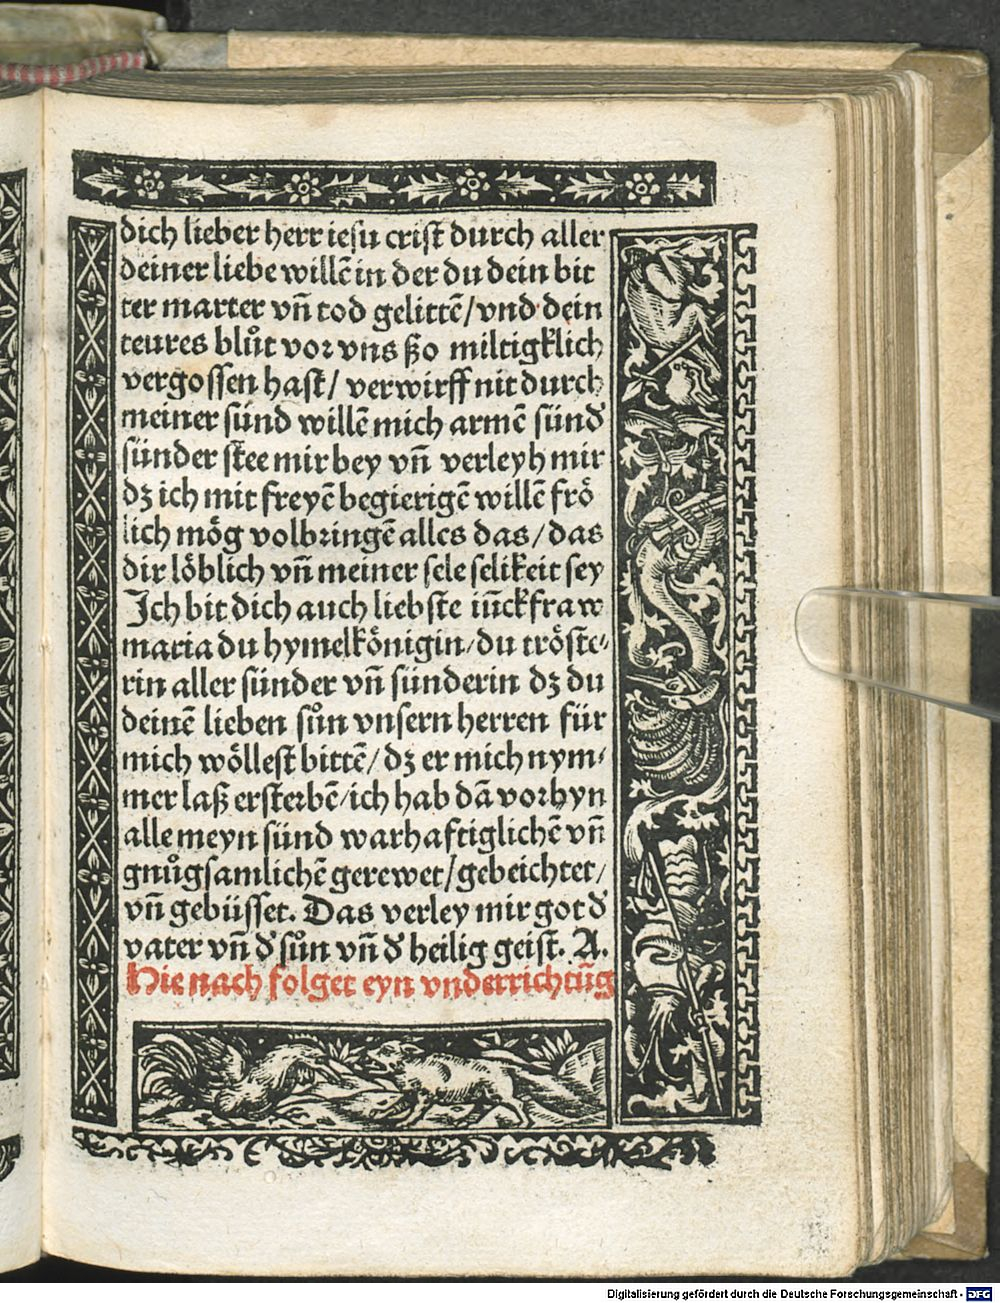 dich lieber herr iesu crist durch aller
deiner liebe willē in der du dein bit
ter marter vn̄ tod gelittē/vnd dein
teures blůt vor vns ßo miltigklich
vergossen hast/ verwirff nit durch
meiner sünd willē mich armē sünd
sünder stee mir bey vn̄ verleyh mir
dʒ ich mit freyē begierigē willē frö
lich mög volbringē alles das/das
dir löblich vn̄ meiner sele selikeit sey
Ich bit dich auch liebste iūckfraw
maria du hymelkönigin/du tröste-
rin aller sünder vn̄ sünderin dʒ du
deinē lieben sůn vnsern herren für
mich wöllest bittē/dʒ er mich nym-
mer laß ersterbē/ich hab dā vorhyn
alle meyn sünd warhaftiglichē vn̄
gnůgsamlichē gerewet/gebeichtet/
vn̄ gebüsset. Das verley mir got d'
vater vn̄ d' sůn vn̄ d' heilig geist. A.
Hie nach folget eyn vnderrichtūg
Digitalisierung gefördert durch die Deutsche Forschungsgemeinschaft - DFG